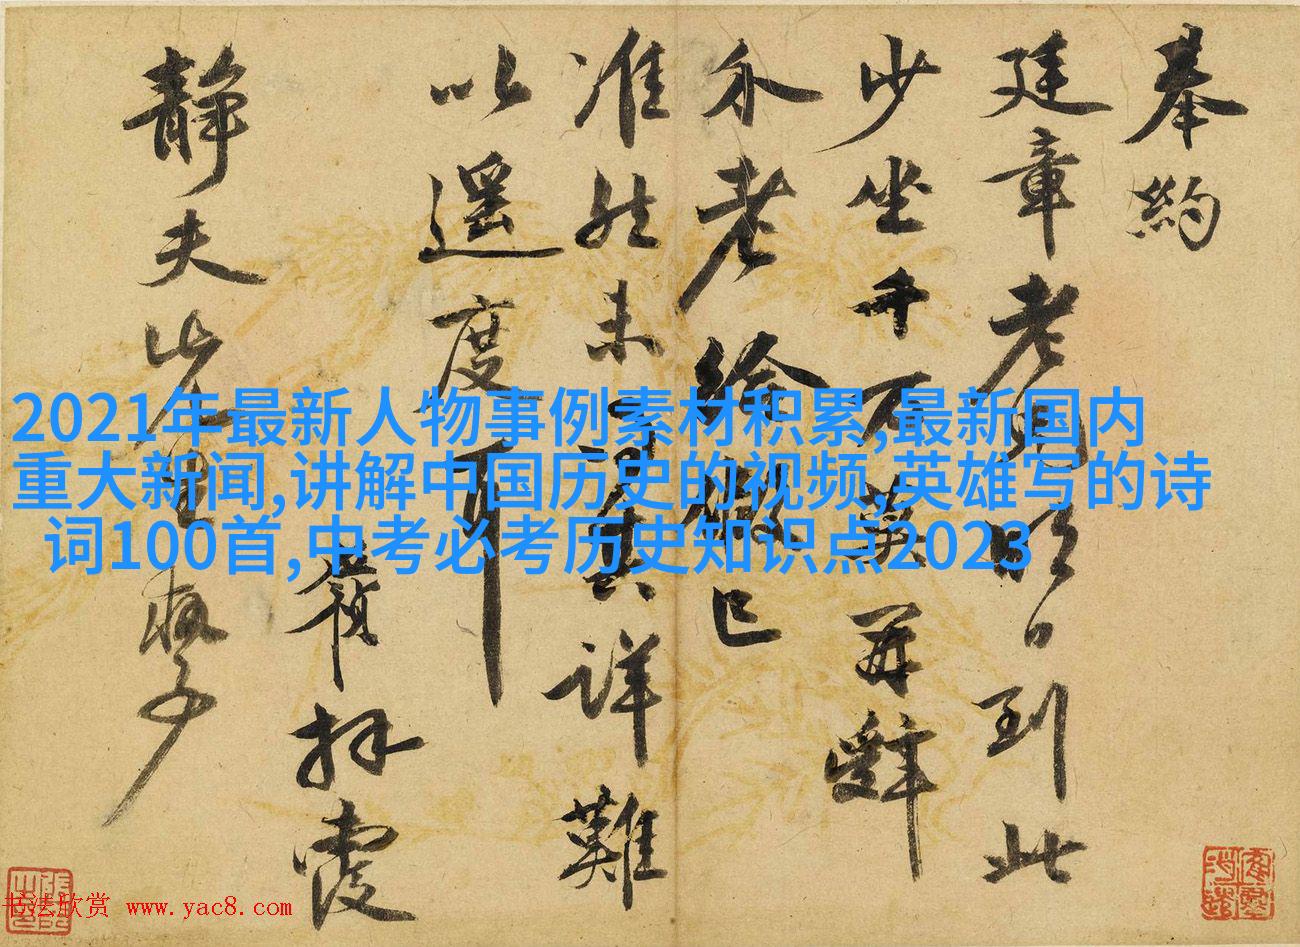 奉約
廷章老兄明日到此
少坐千万莫再辭
老徐已
准然未詳難
以遥度耳
拜覆
静夫
2021年最新人物事例素材积累,最新国内
重大新闻,讲解中国历史的视频,英雄写的诗
词100首,中考必考历史知识点2023
书法欣赏 www.yac8.com